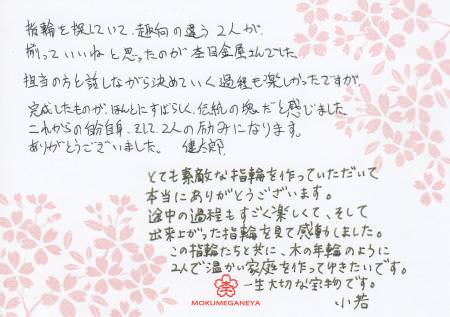 指輪を探していて、趣向の違う2人が、
揃っていいねと思ったのが杢目金屋さんでした。
担当の方と話しながら決めていく過程も楽しかったですが、
完成したものが、ほんとにすばらしく、伝統の塊だと感じました。
これからの自分自身、そして2人の励みになります。
ありがとうございました。 健太郎
とても素敵な指輪を作っていただいて
本当にありがとうございます。
途中の過程もすごく楽しくて、そして
出来上がった指輪を見て感動しました。
この指輪たちと共に、木の年輪のように
2人で温かい家庭を作ってゆきたいです。
一生大切な宝物です。
小若
MOKUMEGANEYA